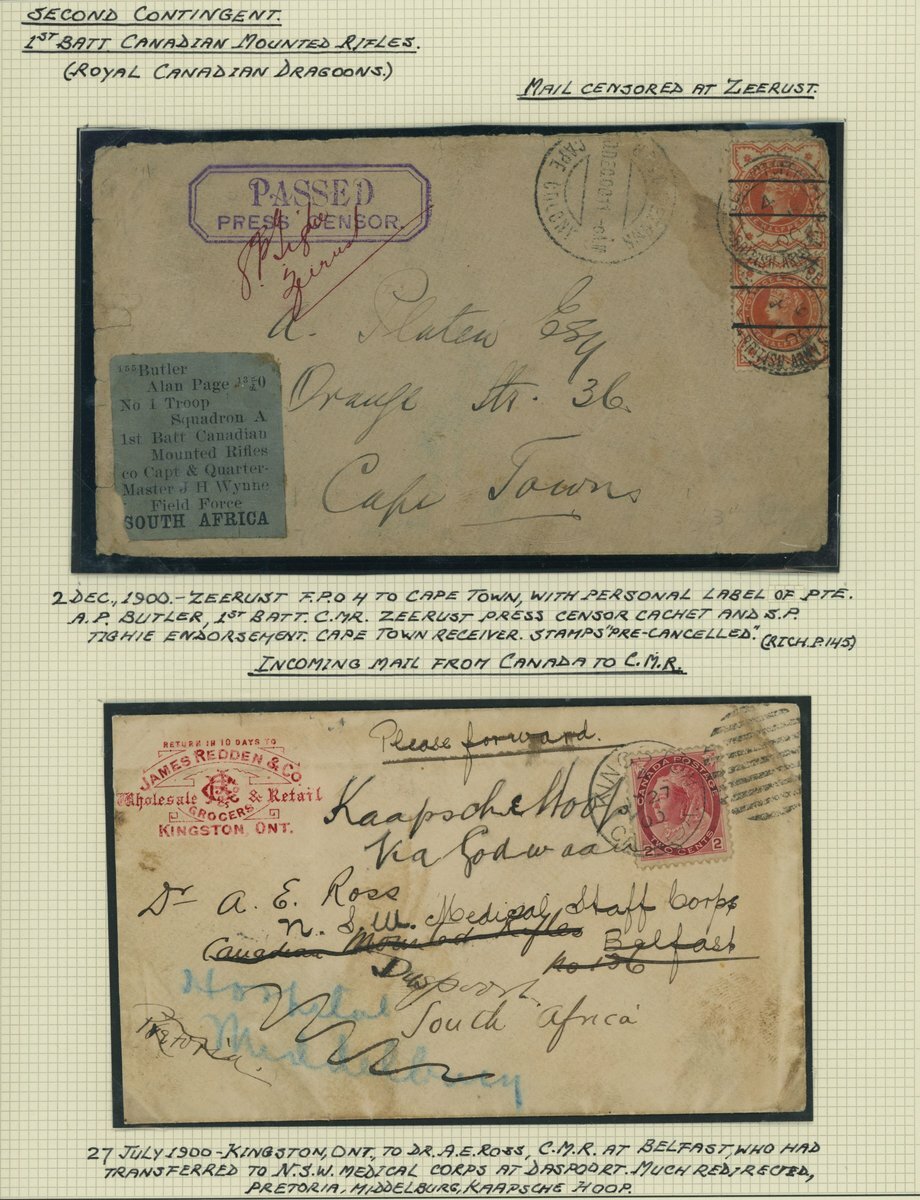 SECOND CONTINGENT.
1ST BATT CANADIAN MOUNTED RIFLES.
(ROYAL CANADIAN DRAGOONS.)
MAIL CENSORED AT ZEERUST.
PASSED
PRESS CENSOR.
Zeerust
CAPE COLONY
BRITISH ARMY
BRITISH ARMY S
A. Platen Esq
Orange Str. 36.
Cape Town
155 Butler
Alan Page
No 1 Troop
Squadron A
1st Batt Canadian
Mounted Rifles
co Capt & Quarter-
Master J H Wynne
Field Force
SOUTH AFRICA
2 DEC., 1900.- ZEERUST F.P.O 4 TO CAPE TOWN, WITH PERSONAL LABEL OF PTE.
A.P. BUTLER, 1ST BATT. C.MR. ZEERUST PRESS CENSOR CACHET AND S.P.
TIGHIE ENDORSEMENT. CAPE TOWN RECEIVER. STAMPS "PRE-CANCELLED".
(RICH.P.145)
INCOMING MAIL FROM CANADA TO C.M.R.
Please forward.
RETURN IN 10 DAYS TO
JAMES REDDEN & CO
Wholesale & Retail
GROCERS
KINGSTON, ONT.
CANADA POSTAGE
2 TWO CENTS 2
27
Kaapsche Hoop
Via Godwaan
Dr A. E. Ross
N. S. W. Medical Staff Corps
Canadian Mounted Rifles Belfast
No 196
Daspoort.
Hospital
South Africa
Pretoria.
Middelburg
27 JULY 1900-KINGSTON, ONT, TO DR. A.E. ROSS, C.M.R. AT BELFAST, WHO HAD
TRANSFERRED TO N.S.W. MEDICAL CORPS AT DASPOORT. MUCH REDIRECTED,
PRETORIA, MIDDELBURG, KAAPSCHE HOOP.